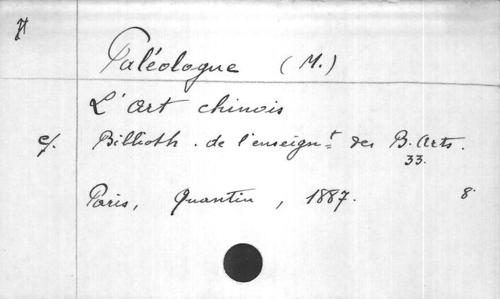 Paléologue (M.)
L'art chinois
c/. Biblioth. de l'enseignt des B. Arts.
33.
Paris, Quantin, 1887. 8.